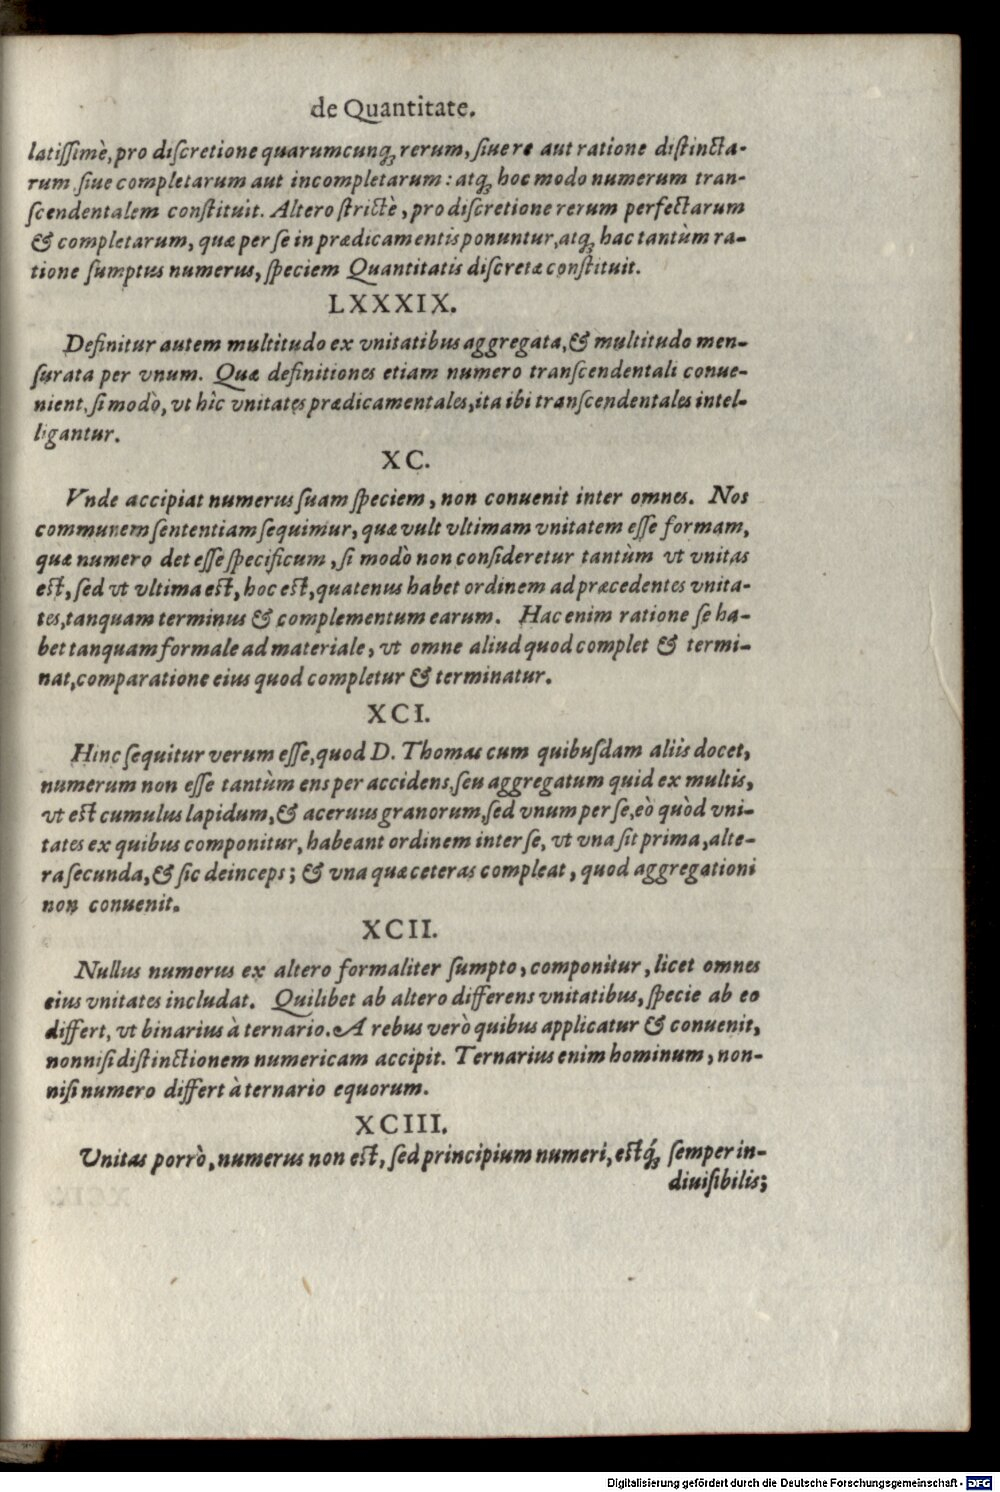 de Quantitate.
latiſſimè, pro diſcretione quarumcunq; rerum, ſiue re aut ratione diſtincta-
rum ſiue completarum aut incompletarum: atq; hoc modo numerum tran-
ſcendentalem conſtituit. Altero ſtrictè, pro diſcretione rerum perfectarum
& completarum, quæ per ſe in prædicamentis ponuntur, atq; hac tantùm ra-
tione ſumptus numerus, ſpeciem Quantitatis diſcretæ conſtituit.
LXXXIX.
Definitur autem multitudo ex vnitatibus aggregata, & multitudo men-
ſurata per vnum. Quæ definitiones etiam numero tranſcendentali conue-
nient, ſi modò, vt hîc vnitates prædicamentales, ita ibi tranſcendentales intel-
ligantur.
XC.
Vnde accipiat numerus ſuam ſpeciem, non conuenit inter omnes. Nos
communem ſententiam ſequimur, quæ vult vltimam vnitatem eſſe formam,
quæ numero det eſſe ſpecificum, ſi modò non conſideretur tantùm vt vnitas
eſt, ſed vt vltima eſt, hoc eſt, quatenus habet ordinem ad præcedentes vnita-
tes, tanquam terminus & complementum earum. Hac enim ratione ſe ha-
bet tanquam formale ad materiale, vt omne aliud quod complet & termi-
nat, comparatione eius quod completur & terminatur.
XCI.
Hinc ſequitur verum eſſe, quod D. Thomas cum quibuſdam aliis docet,
numerum non eſſe tantùm ens per accidens, ſeu aggregatum quid ex multis,
vt eſt cumulus lapidum, & aceruus granorum, ſed vnum per ſe, eò quòd vni-
tates ex quibus componitur, habeant ordinem inter ſe, vt vna ſit prima, alte-
ra ſecunda, & ſic deinceps; & vna quæ ceteras compleat, quod aggregationi
non conuenit.
XCII.
Nullus numerus ex altero formaliter ſumpto, componitur, licet omnes
eius vnitates includat. Quilibet ab altero differens vnitatibus, ſpecie ab eo
differt, vt binarius à ternario. A rebus verò quibus applicatur & conuenit,
nonniſi diſtinctionem numericam accipit. Ternarius enim hominum, non-
niſi numero differt à ternario equorum.
XCIII.
Unitas porrò, numerus non eſt, ſed principium numeri, eſtq́; ſemper in-
diuiſibilis;
Digitalisierung gefördert durch die Deutsche Forschungsgemeinschaft - DFG